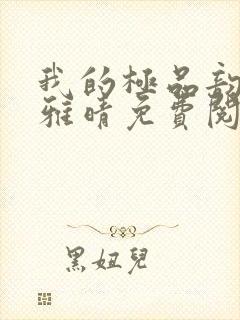 我的極品
雅晴免費閱
黑妞兒